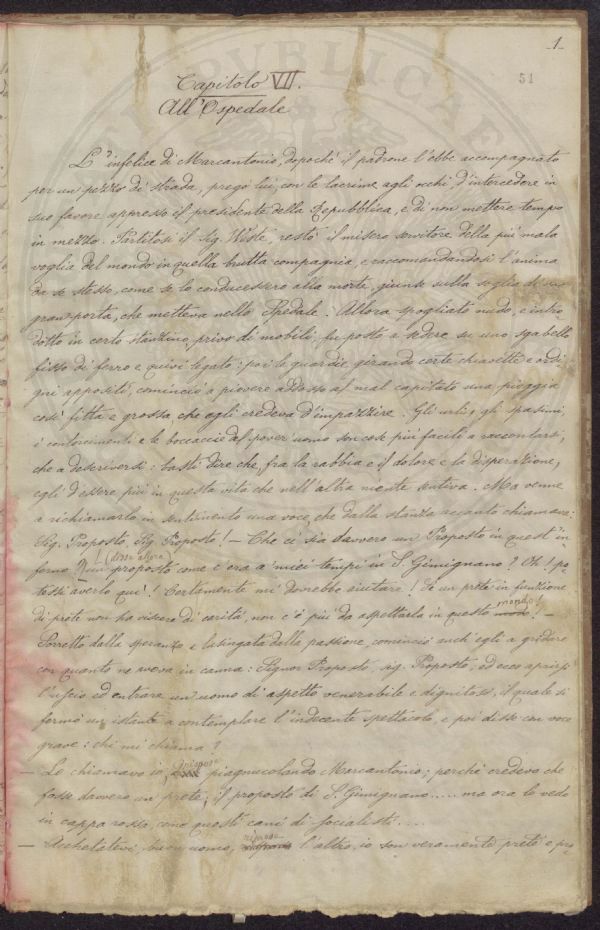 1
51
Capitolo VII.
All'Ospedale
L'infelice di Marcantonio, dopoché il padrone l'ebbe accompagnato
per un pezzo di strada, pregò lui, con le lacrime agli occhi d'intercedere in
suo favore appresso il presidente della Repubblica, e di non mettere tempo
in mezzo. Partitosi il Sig. Weste, restò il misero servitore della più mala
voglia del mondo in quella brutta compagnia, e raccomandandosi l'anima
da se stesso, come se lo conducessero alla morte, giunse sulla soglia di una
gran porta, che metteva nello Spedale. Allora spogliato nudo, e intro
dotto in certo stanzino, privo di mobili, fu posto a sedere su uno sgabello
fisso di ferro e quivi legato: poi le guardie, girando certe chiavette e ordi
gni appositi, cominciò a piovere addosso al mal capitato una pioggia
così fitta e grossa che egli credeva d'impazzire. Gli urli, gli spasimi,
i contorcimenti e le boccaccie del pover uomo son cose più facili a raccontarsi,
che a descriversi: basti dire che, fra la rabbia e il dolore e la disperazione,
egli d'essere più in questa vita che nell'altra niente sentiva. Ma venne
a richiamarlo in sentimento una voce, che dalla stanza accanto chiamava:
Sig. Proposto, Sig. Proposto! — Che ci sia davvero un Proposto in quest'in
ferno! (disse allora) un proposto come c'era a' miei tempi in S. Gimignano? Oh! po
tessi averlo quì! Certamente mi dovrebbe aiutare! Se un prete in funzione
di prete non ha viscere di carità, non c'è più da aspettarla in questo mondo! —
Sorretto dalla speranza e lusingato dalla passione, cominciò anch'egli a gridare
con quanto ne aveva in canna: Signor Proposto, sig. Proposto, ed ecco aprirsi
l'uscio ed entrare un uomo di aspetto venerabile e dignitoso, il quale si
fermò un istante a contemplare l'indecente spettacolo, e poi disse con voce
grave: chi mi chiama?
— Lo chiamavo io, rispose piagnucolando Marcantonio; perchè credevo che
fosse davvero un prete, il proposto di S. Gimignano..... ma ora lo vedo
in cappa rossa, come questi cani di socialisti....
— Acchetatevi, buon uomo, riprese l'altro, io son veramente prete e pro